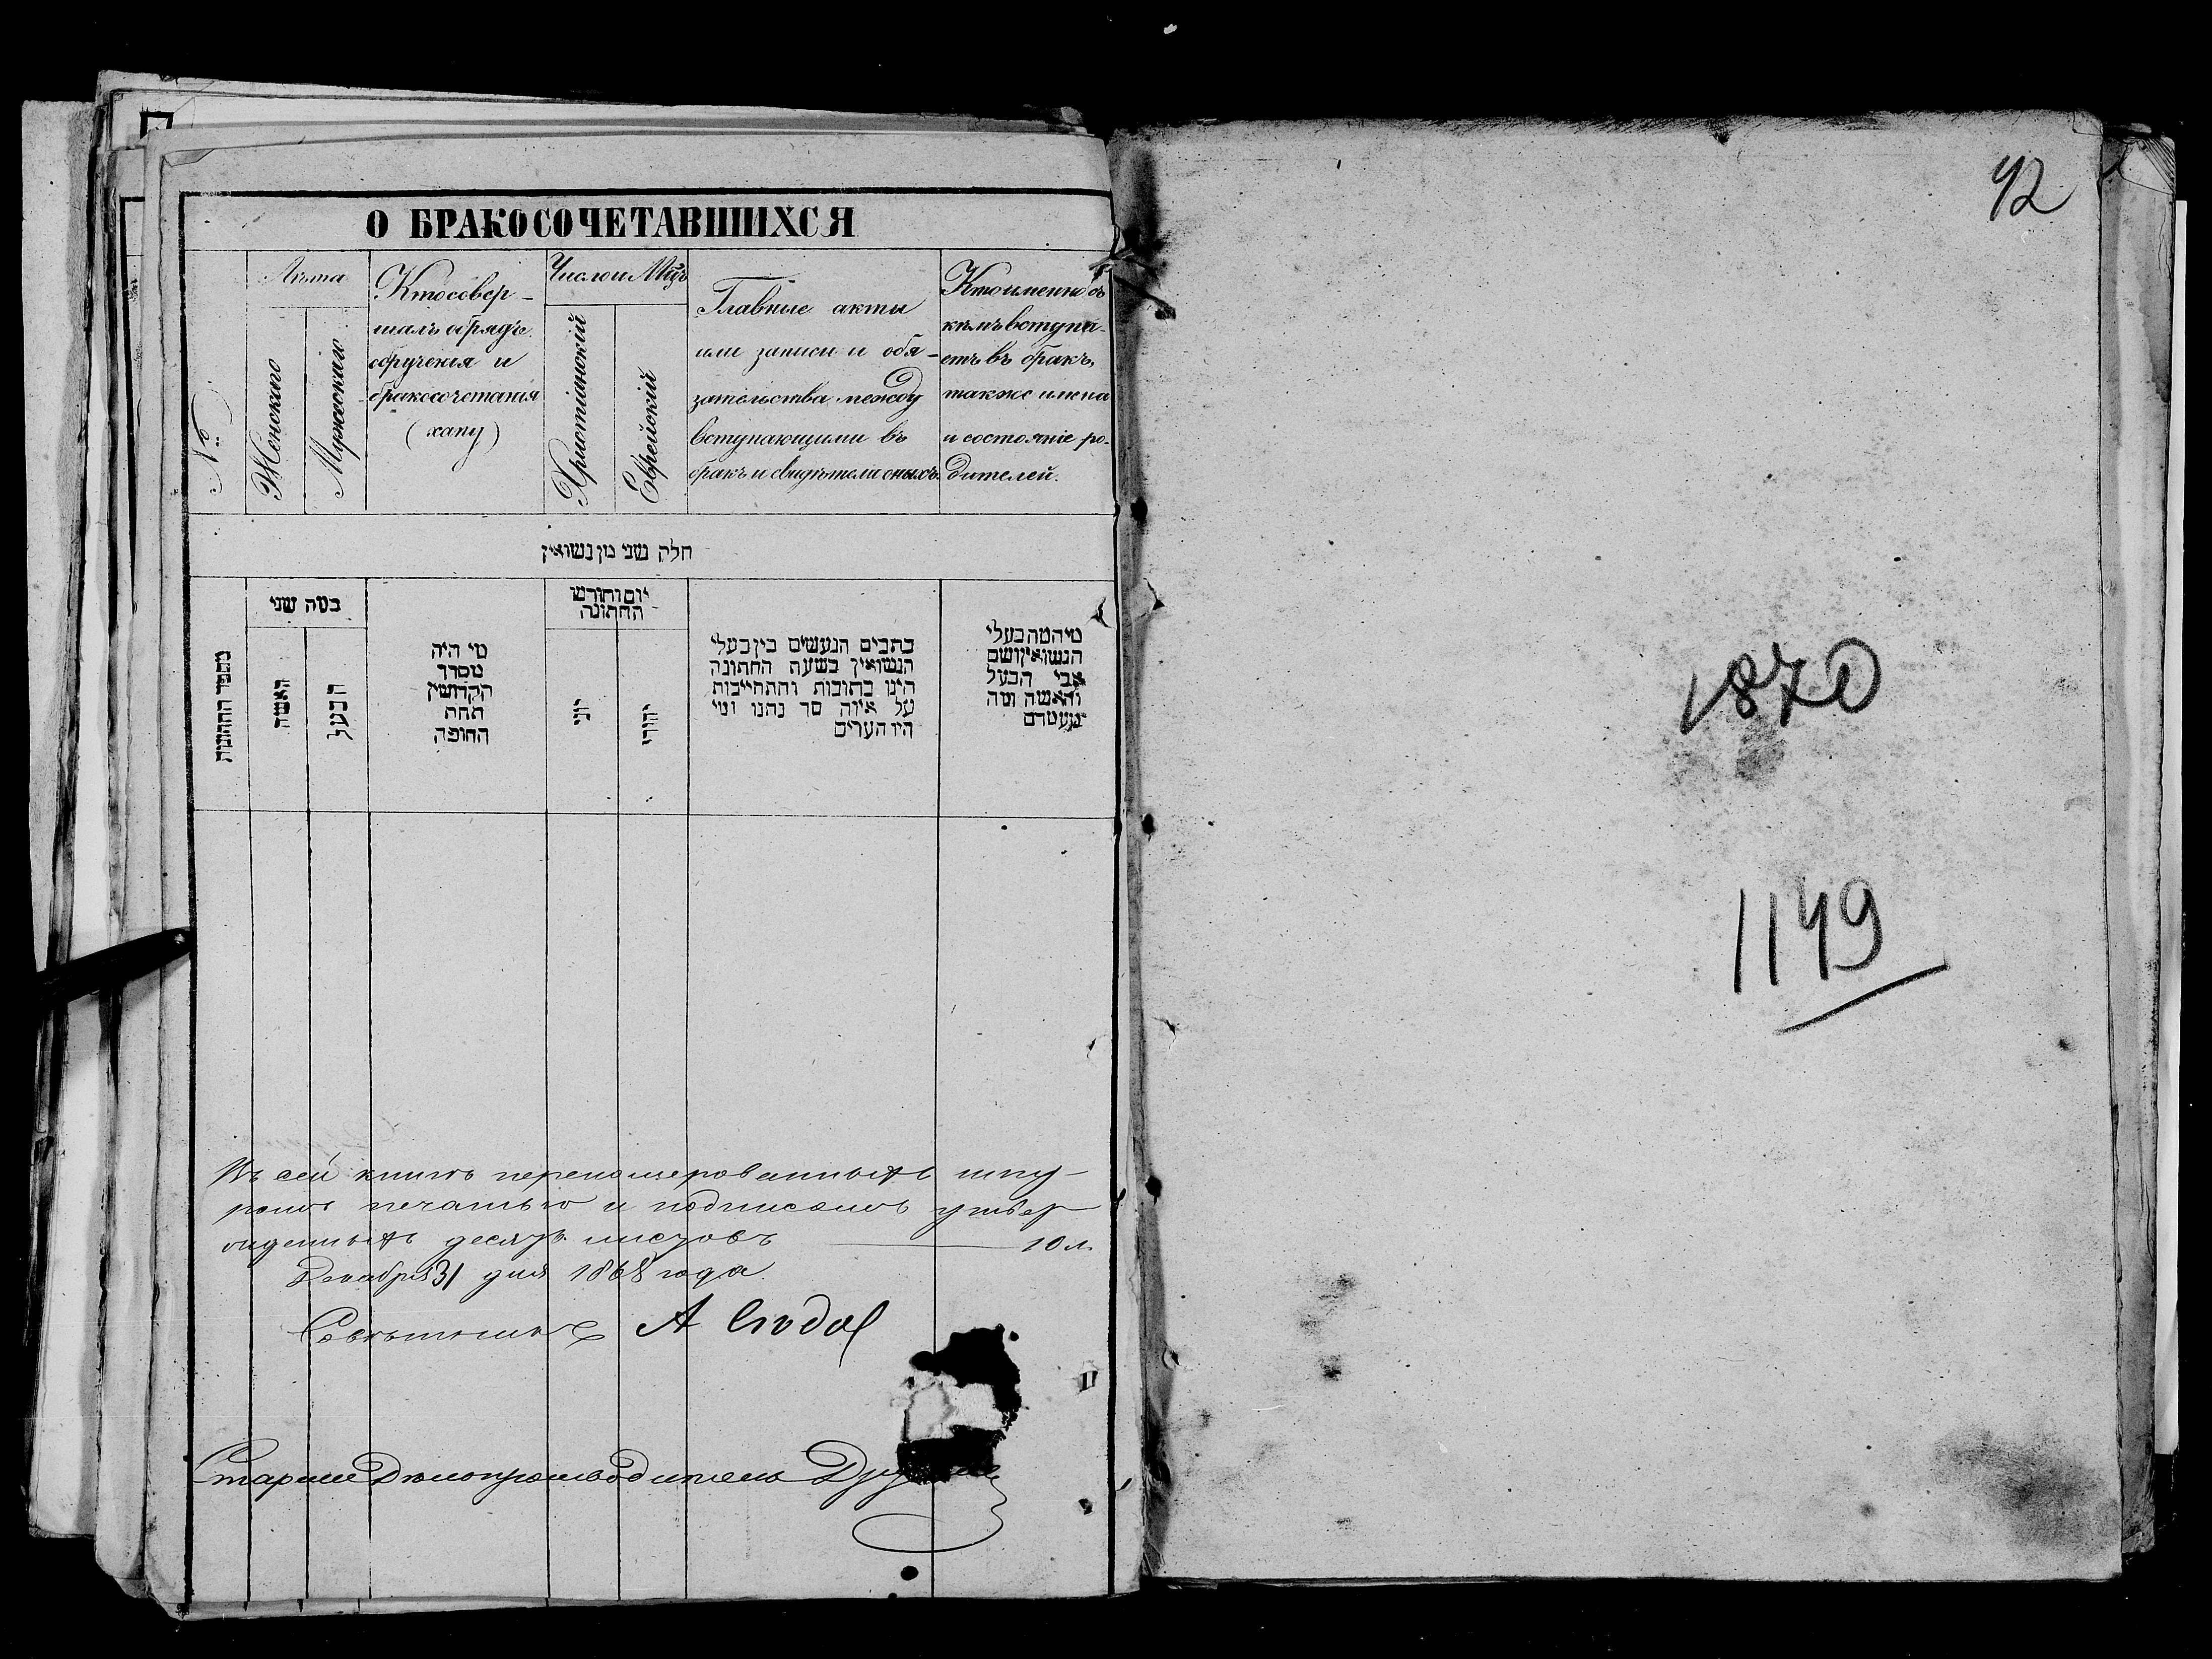 О БРАКОСОЧЕТАВШИХСЯ
№
Лѣта
Женскаго
Мужескаго
Кто совер-
шалъ обрядъ
обрученія и
бракосочетанія
(хапу)
Число и Мцъ
Христіанскій
Еврейскій
Главные акты
или записи и обя-
зательства между
вступающими въ
бракъ и свидѣтели оныхъ.
Кто именно съ
кѣмъ вступа-
етъ въ бракъ,
также имена
и состояніе ро-
дителей.
חלק שני מן נשואין
מספר החתונות
כמה שני
האשה
הבעל
מי היה
מסדר
הקדושין
תחת
החופה
יום וחודש
החתונה
יוני
יהודי
כתבים הנעשים בין בעלי
הנשואין בשעת החתונה
היינו כתובות והתחייבות
על איזה סך נתנו ומי
היו העדים
מי המה בעלי
הנשואין ושם
אבי הבעל
והאשה ומה
מעמדם
Въ сей книгѣ переномерованныхъ шну-
ромъ печатью и подписомъ утвер
жденныхъ десять листовъ 10 л.
Декабря 31 дня 1868 года
Совѣтникъ А
II
Старшій Дѣлопроизводитель
42
1870
1149